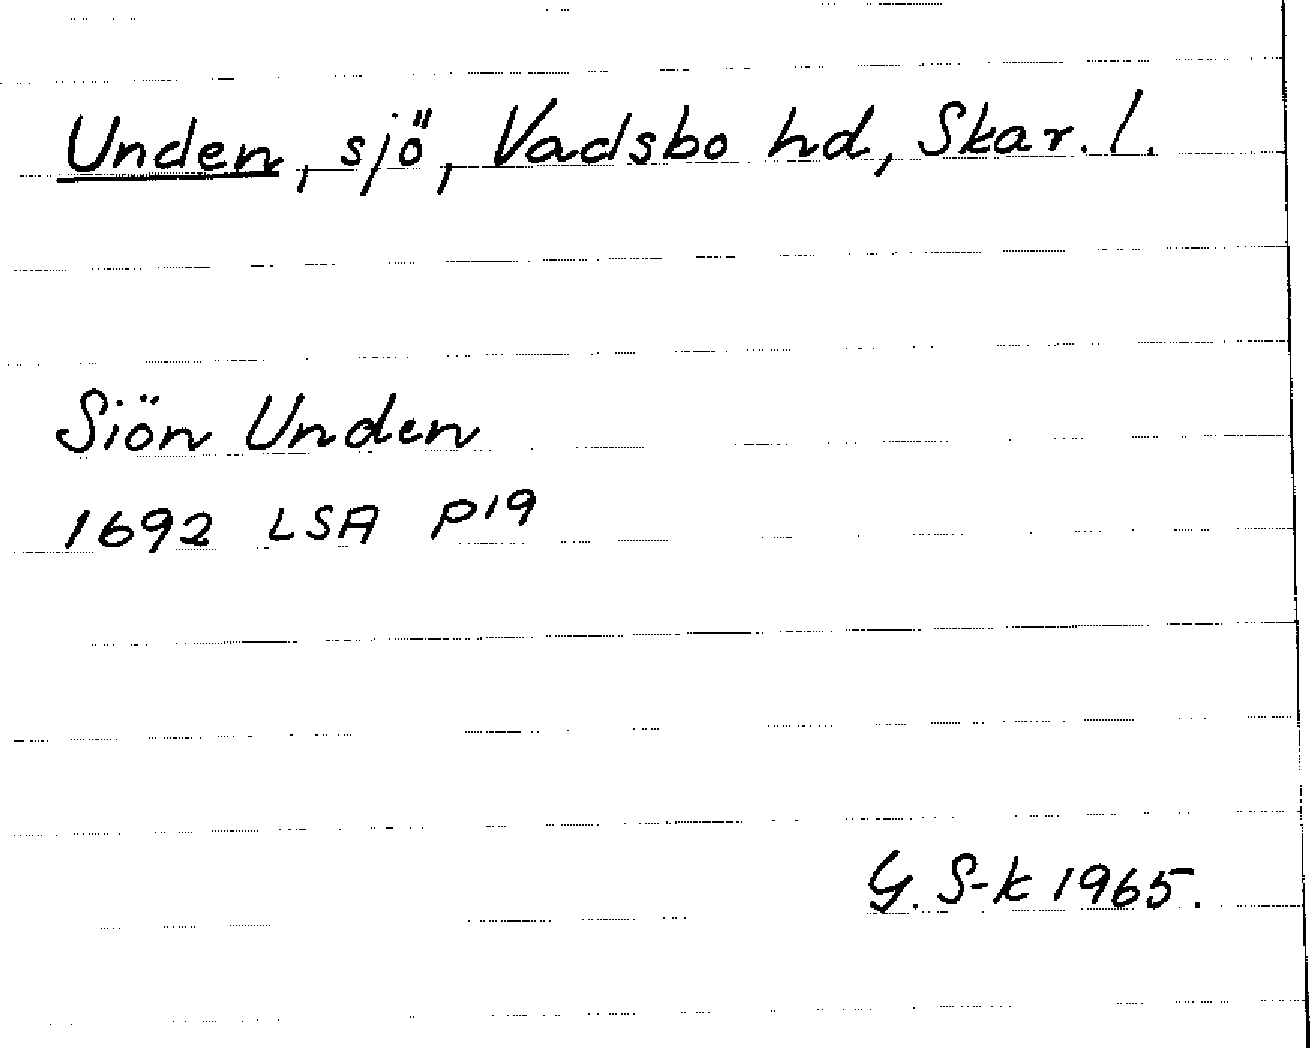 Unden, sjö, Vadsbo hd, Skar. l.
Siön Unden
1692 LSA P19
G. S-k 1965.